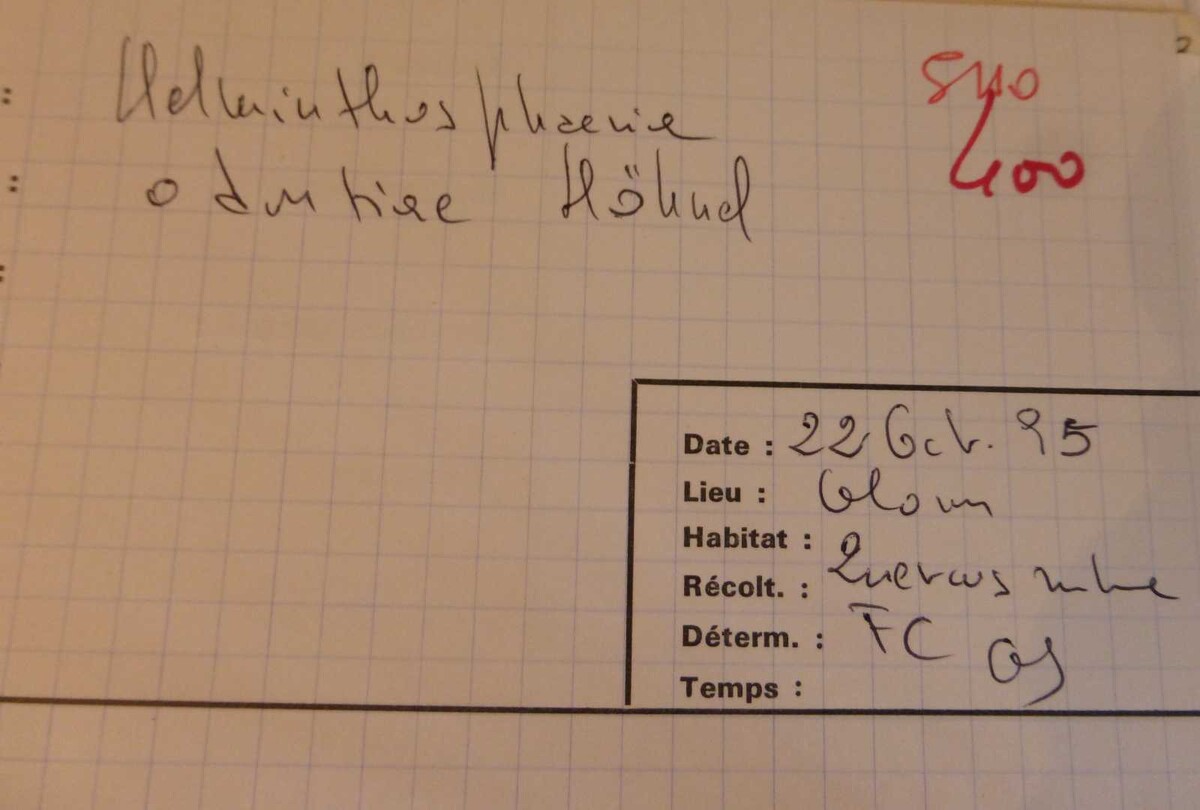 Helminthosphaeria
odontiae Höhnel
Date : 22 Oct. 95
Lieu :
Habitat : Quercus rubra
Récolt. :
Déterm. : FC
Temps :
400